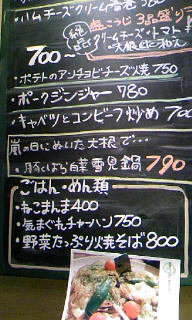 ハムチーズクリーム春巻
塩こうじ 3品盛り
絶品 クリームチーズ・トマト
・大根
700〜
・ポテトのアンチョビチーズ焼 750
・ポークジンジャー 780
・キャベツとコンビーフ炒め 700
嵐の日にぬいた大根で…
・豚しばら白菜 雪見鍋 790
ごはん・めん類
・ねこまんま 400
・気まぐれチャーハン 750
・野菜たっぷり焼そば 800